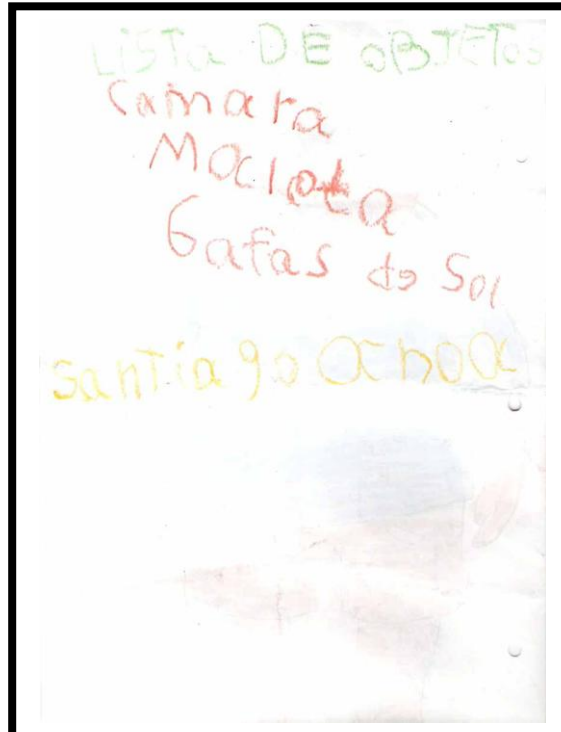 LiSTa DE OBJETOS
Camara
Maleta
Gafas de Sol
SanTiago Ochoa